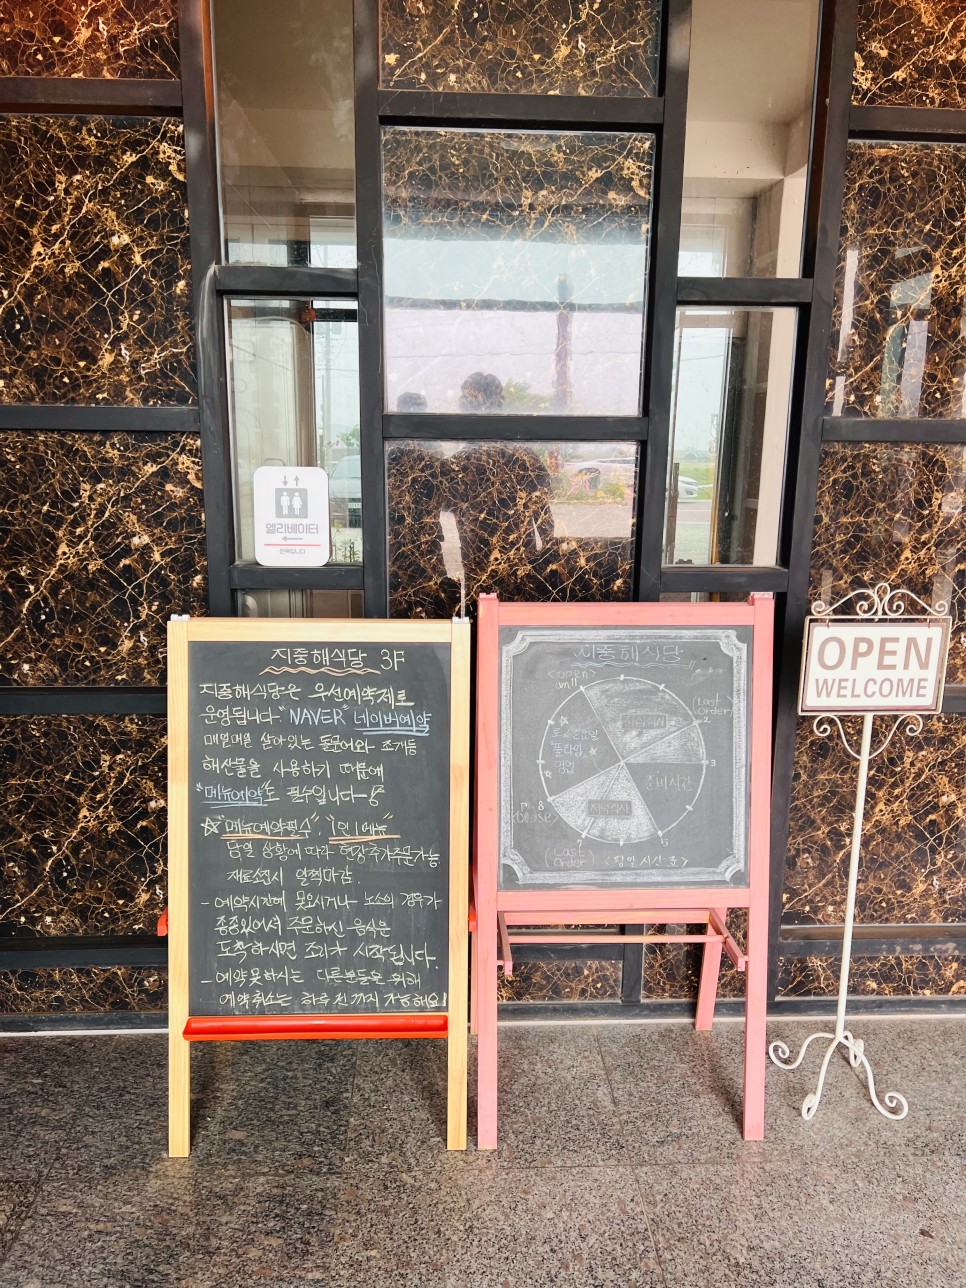 엘리베이터
지중해식당 3F
지중해식당은 우선예약제로
운영됩니다 "NAVER" 네이버예약
매일매일 살아있는 돌문어와 조개등
해산물을 사용하기 때문에
"메뉴예약"도 필수입니다
☆"메뉴예약필수", "1인 1메뉴"
당일 상황에 따라 현장추가주문가능
재료소진시 일찍마감.
- 예약시간에 못오시거나 노쇼의 경우가
종종있어서 주문하신 음식은
도착하시면 조리가 시작됩니다.
- 예약못하시는 다른분들을 위해
예약취소는 하루 전까지 가능해요!
지중해식당
<open>
am11
(Last
Order)
2
점심식사
토요일
풀타임
영업
3
준비시간
pm 8
<close>
저녁식사
7
5
(Last
Order)
OPEN
WELCOME